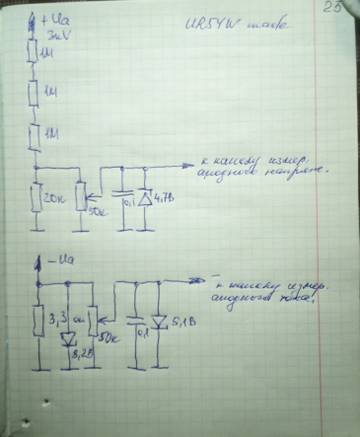 25
+Ua
3кV
UR5YW made
1М
1М
1М
к каналу измер.
анодного напряж.
20к
50к
0,1
4,7В
-Ua
к каналу измер.
анодного тока.
3,3 ом
50к
0,1
5,1В
8,2В